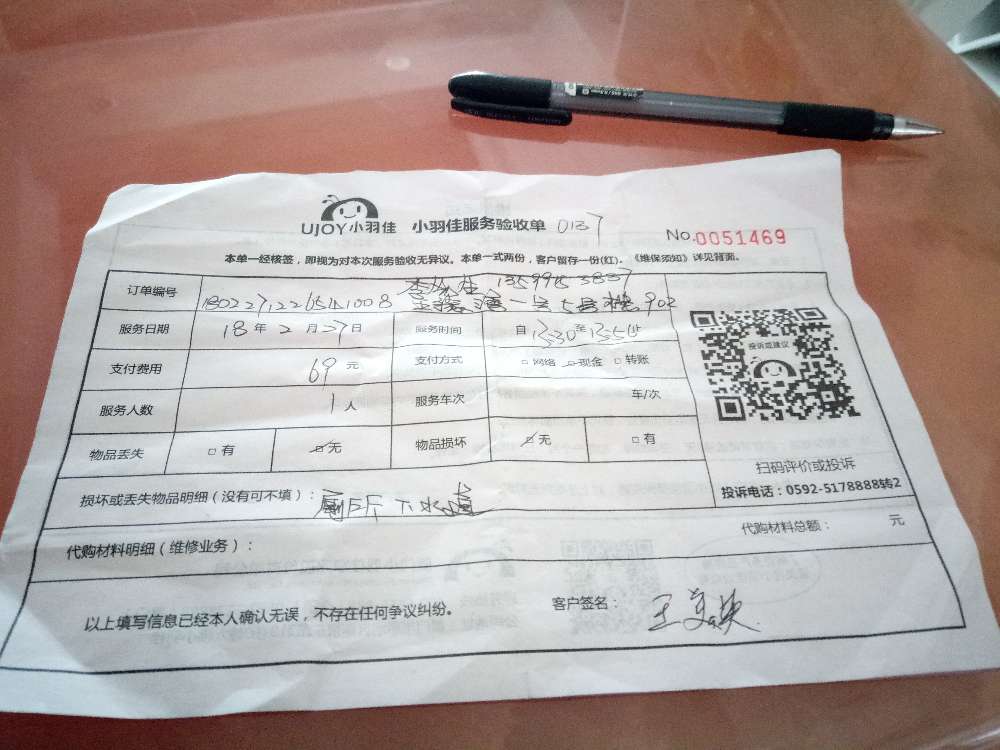 UJOY小羽佳 小羽佳服务验收单 0137
No.0051469
本单一经核签，即视为对本次服务验收无异议。本单一式两份，客户留存一份(红)。《维保须知》详见背面。
订单编号
服务日期 18年2月27日 服务时间 自13:30至13:50止
支付费用 69元 支付方式 □网络 □现金 □转账
服务人数 1人 服务车次 车/次
物品丢失 □有 □无 物品损坏 □无 □有
投诉或建议
扫码评价或投诉
投诉电话：0592-5178888转2
损坏或丢失物品明细（没有可不填）： 厕所下水道
代购材料明细（维修业务）： 代购材料总额： 元
以上填写信息已经本人确认无误，不存在任何争议纠纷。 客户签名：